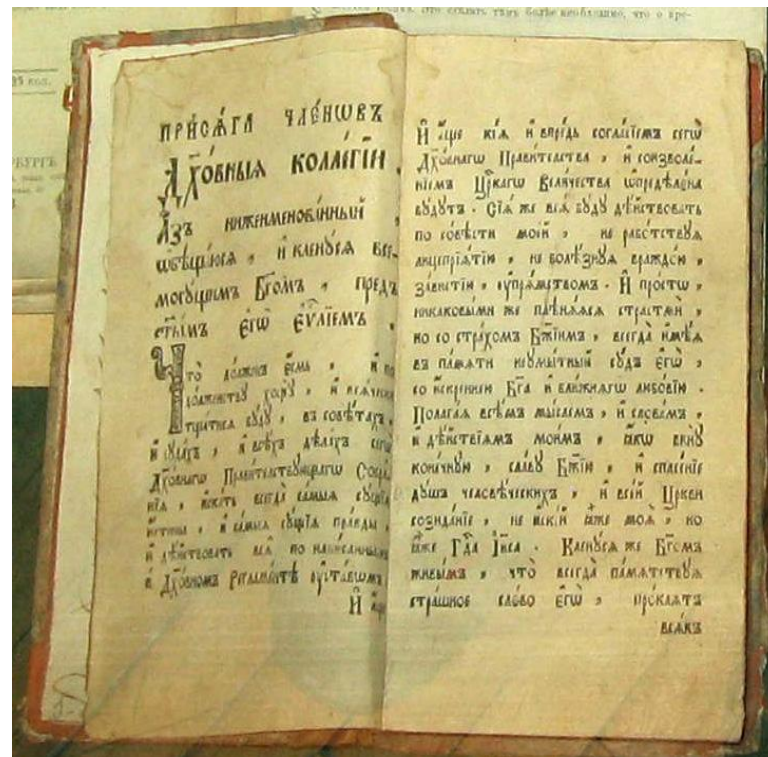 ПРИСѦ́ГА ЧЛЕ́НѠВЪ
ДХ҃О́ВНЫѦ КОЛЛЕ́ГЇИ.
А҆́зъ нижеименова́нный ,
ѡ҆бѣща́юсѧ , и҆ клену́сѧ все-
могу́щимъ Бг҃омъ , пред̾
ст҃ы́мъ є҆гѡ̀ є҆ѵⷢ҇лїемъ ,
Что̀ до́лженъ є҆́смь , и҆ по
до́лженству хощꙋ̀ , и҆ всѧ́чески
тща́тисѧ бу́дꙋ , въ совѣ́тахъ ,
и҆ сꙋдѣ́хъ , и҆ всѣ́хъ дѣ́лѣхъ сегѡ̀
Дх҃о́внагѡ Прави́телствꙋющагѡ Собра́-
нїѧ , и҆ска́ть всегда̀ са́мыѧ сꙋ́щїѧ
и҆́стины , и҆ са́мыѧ сꙋ́щїѧ пра́вды ,
и҆ дѣ́йствовать всѧ̑ по напи́саннымъ
в̾ Дх҃о́вномъ Регла́ментѣ ᲂу҆ста́вѡмъ
И҆ а҆́ще
И҆ а҆́ще кі́ѧ и҆ впре́дь согла́сїемъ сегѡ̀
Дх҃о́внагѡ Прави́телства , и҆ соизволе́-
нїемъ Цр҃каго Вели́чества ѡ҆предѣлена̀
бу́дꙋтъ . Сїѧ̑ же всѧ̑ бу́дꙋ дѣ́йствовать
по со́вѣсти мое́й , не рабо́тствꙋѧ
лицепрїѧ́тїю , не болѣ́знꙋѧ враждо́ю ,
за́вистїю , ᲂу҆прѧ́мствомъ . И҆ про́стѡ ,
никако́выми же плѣнѧ́ѧсѧ страстьмѝ ,
но со стра́хомъ Бж҃їимъ , всегда̀ и҆мѣ́ѧ
въ па́мѧти неумы́тный сꙋ́дъ є҆гѡ̀ ,
со и҆́скреннею Бг҃а и҆ бли́жнѧгѡ любо́вїю .
Полага́ѧ всѣ́мъ мы́слемъ , и҆ слове́мъ ,
и҆ дѣ́йствїѧмъ мои́мъ , ꙗ҆́кѡ винꙋ̀
коне́чнꙋю , сла́вꙋ Бж҃їю , и҆ спасе́нїе
дꙋ́шъ человѣ́ческихъ , и҆ все́й Цр҃кви
созида́нїе , не и҆скі́й ꙗ҆̀же моѧ̑ , но
ꙗ҆̀же Гд҃а І҆и҃са . Клену́сѧ же Бг҃омъ
живы́мъ , что̀ всегда̀ па́мѧтствꙋѧ
стра́шное сло́во є҆гѡ̀ , про́клѧтъ
всѧ́къ